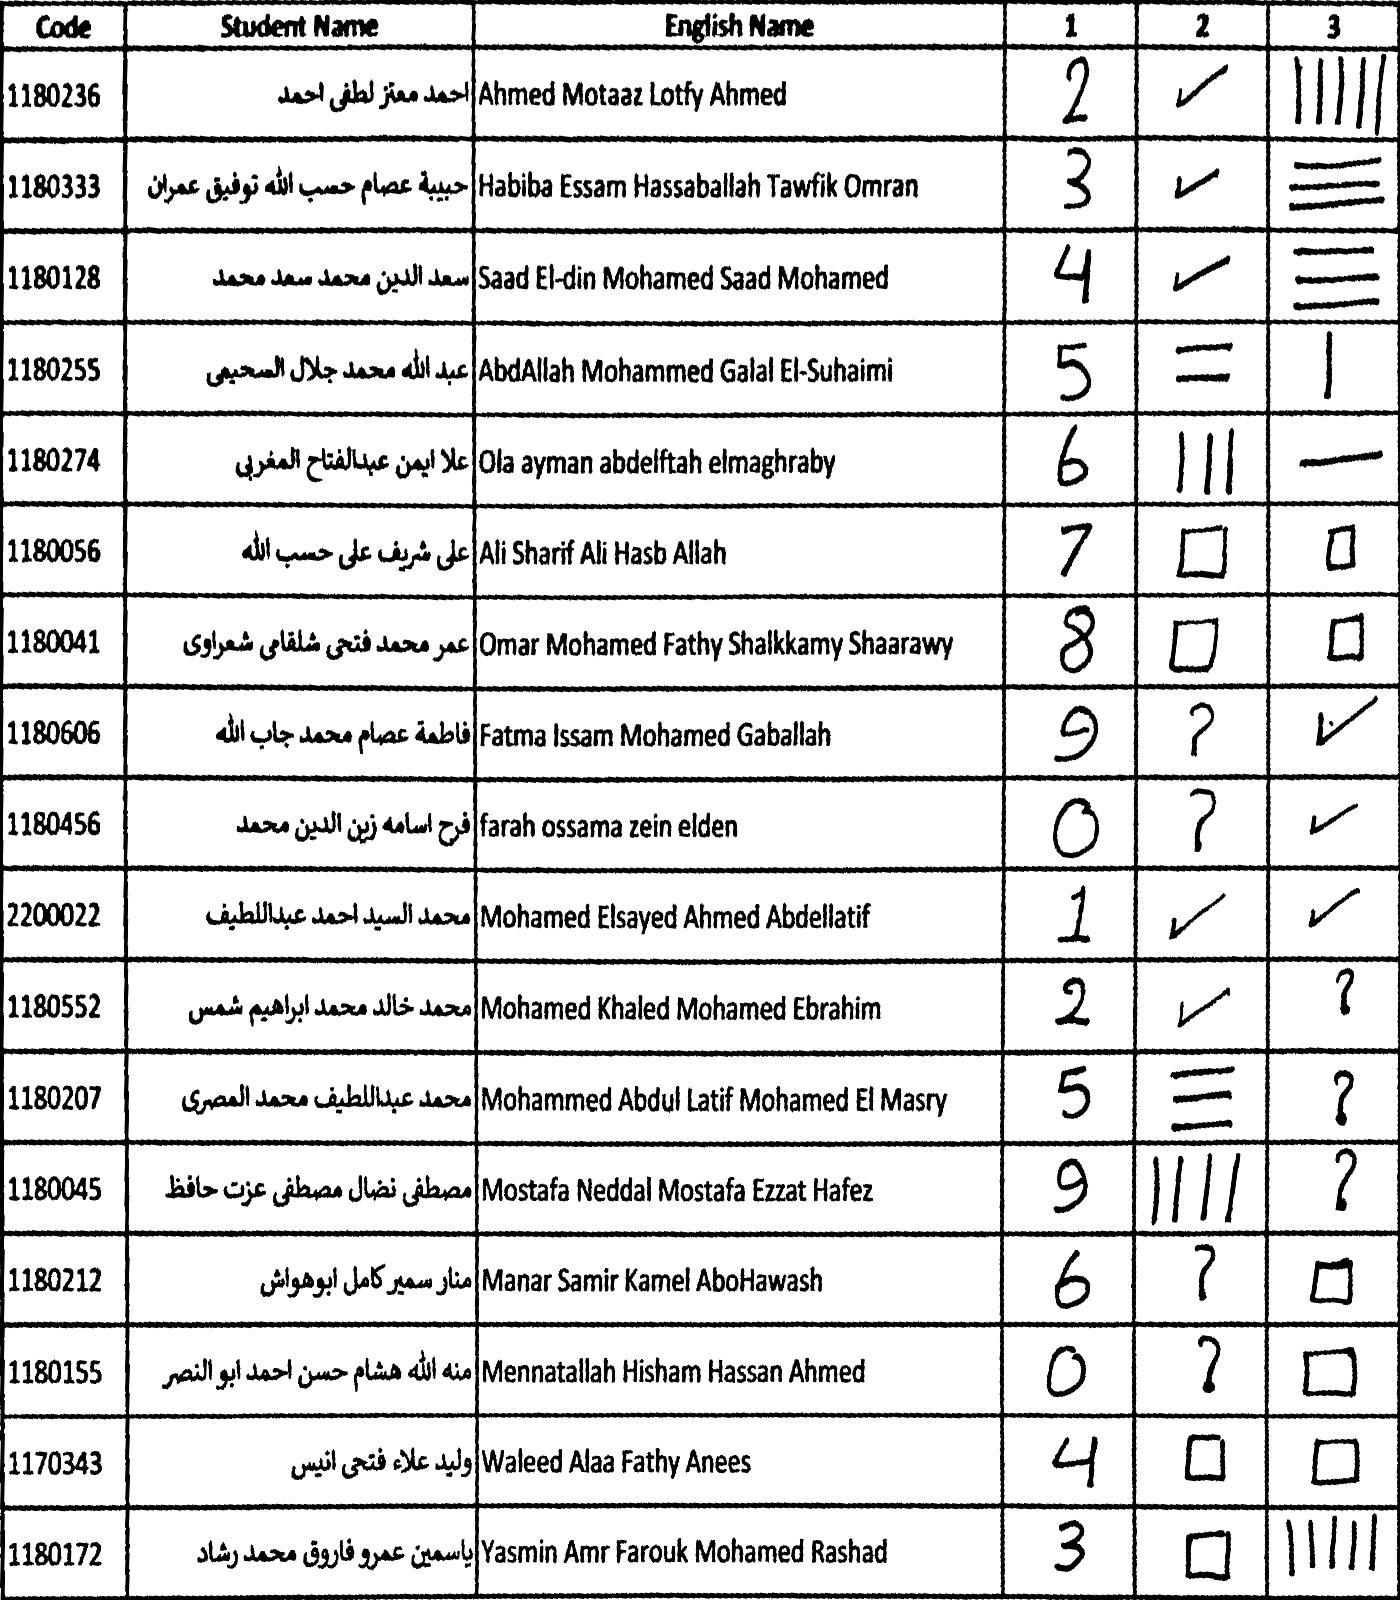 Code Student Name English Name 1 2 3
1180236 احمد معتز لطفى احمد Ahmed Motaaz Lotfy Ahmed 2 ✓ |||||
1180333 حبيبة عصام حسب الله توفيق عمران Habiba Essam Hassaballah Tawfik Omran 3 ✓ ☰
1180128 سعد الدين محمد سعد محمد Saad El-din Mohamed Saad Mohamed 4 ✓ ☰
1180255 عبد الله محمد جلال السحيمى AbdAllah Mohammed Galal El-Suhaimi 5 = |
1180274 علا ايمن عبدالفتاح المغربى Ola ayman abdelftah elmaghraby 6 ||| —
1180056 على شريف على حسب الله Ali Sharif Ali Hasb Allah 7 □ □
1180041 عمر محمد فتحى شلقامى شعراوى Omar Mohamed Fathy Shalkkamy Shaarawy 8 □ □
1180606 فاطمة عصام محمد جاب الله Fatma Issam Mohamed Gaballah 9 ? ✓
1180456 فرح اسامه زين الدين محمد farah ossama zein elden 0 ? ✓
2200022 محمد السيد احمد عبداللطيف Mohamed Elsayed Ahmed Abdellatif 1 ✓ ✓
1180552 محمد خالد محمد ابراهيم شمس Mohamed Khaled Mohamed Ebrahim 2 ✓ ?
1180207 محمد عبداللطيف محمد المصرى Mohammed Abdul Latif Mohamed El Masry 5 ☰ ?
1180045 مصطفى نضال مصطفى عزت حافظ Mostafa Neddal Mostafa Ezzat Hafez 9 |||| ?
1180212 منار سمير كامل ابوهواش Manar Samir Kamel AboHawash 6 ? □
1180155 منه الله هشام حسن احمد ابو النصر Mennatallah Hisham Hassan Ahmed 0 ? □
1170343 وليد علاء فتحى انيس Waleed Alaa Fathy Anees 4 □ □
1180172 ياسمين عمرو فاروق محمد رشاد Yasmin Amr Farouk Mohamed Rashad 3 □ |||||